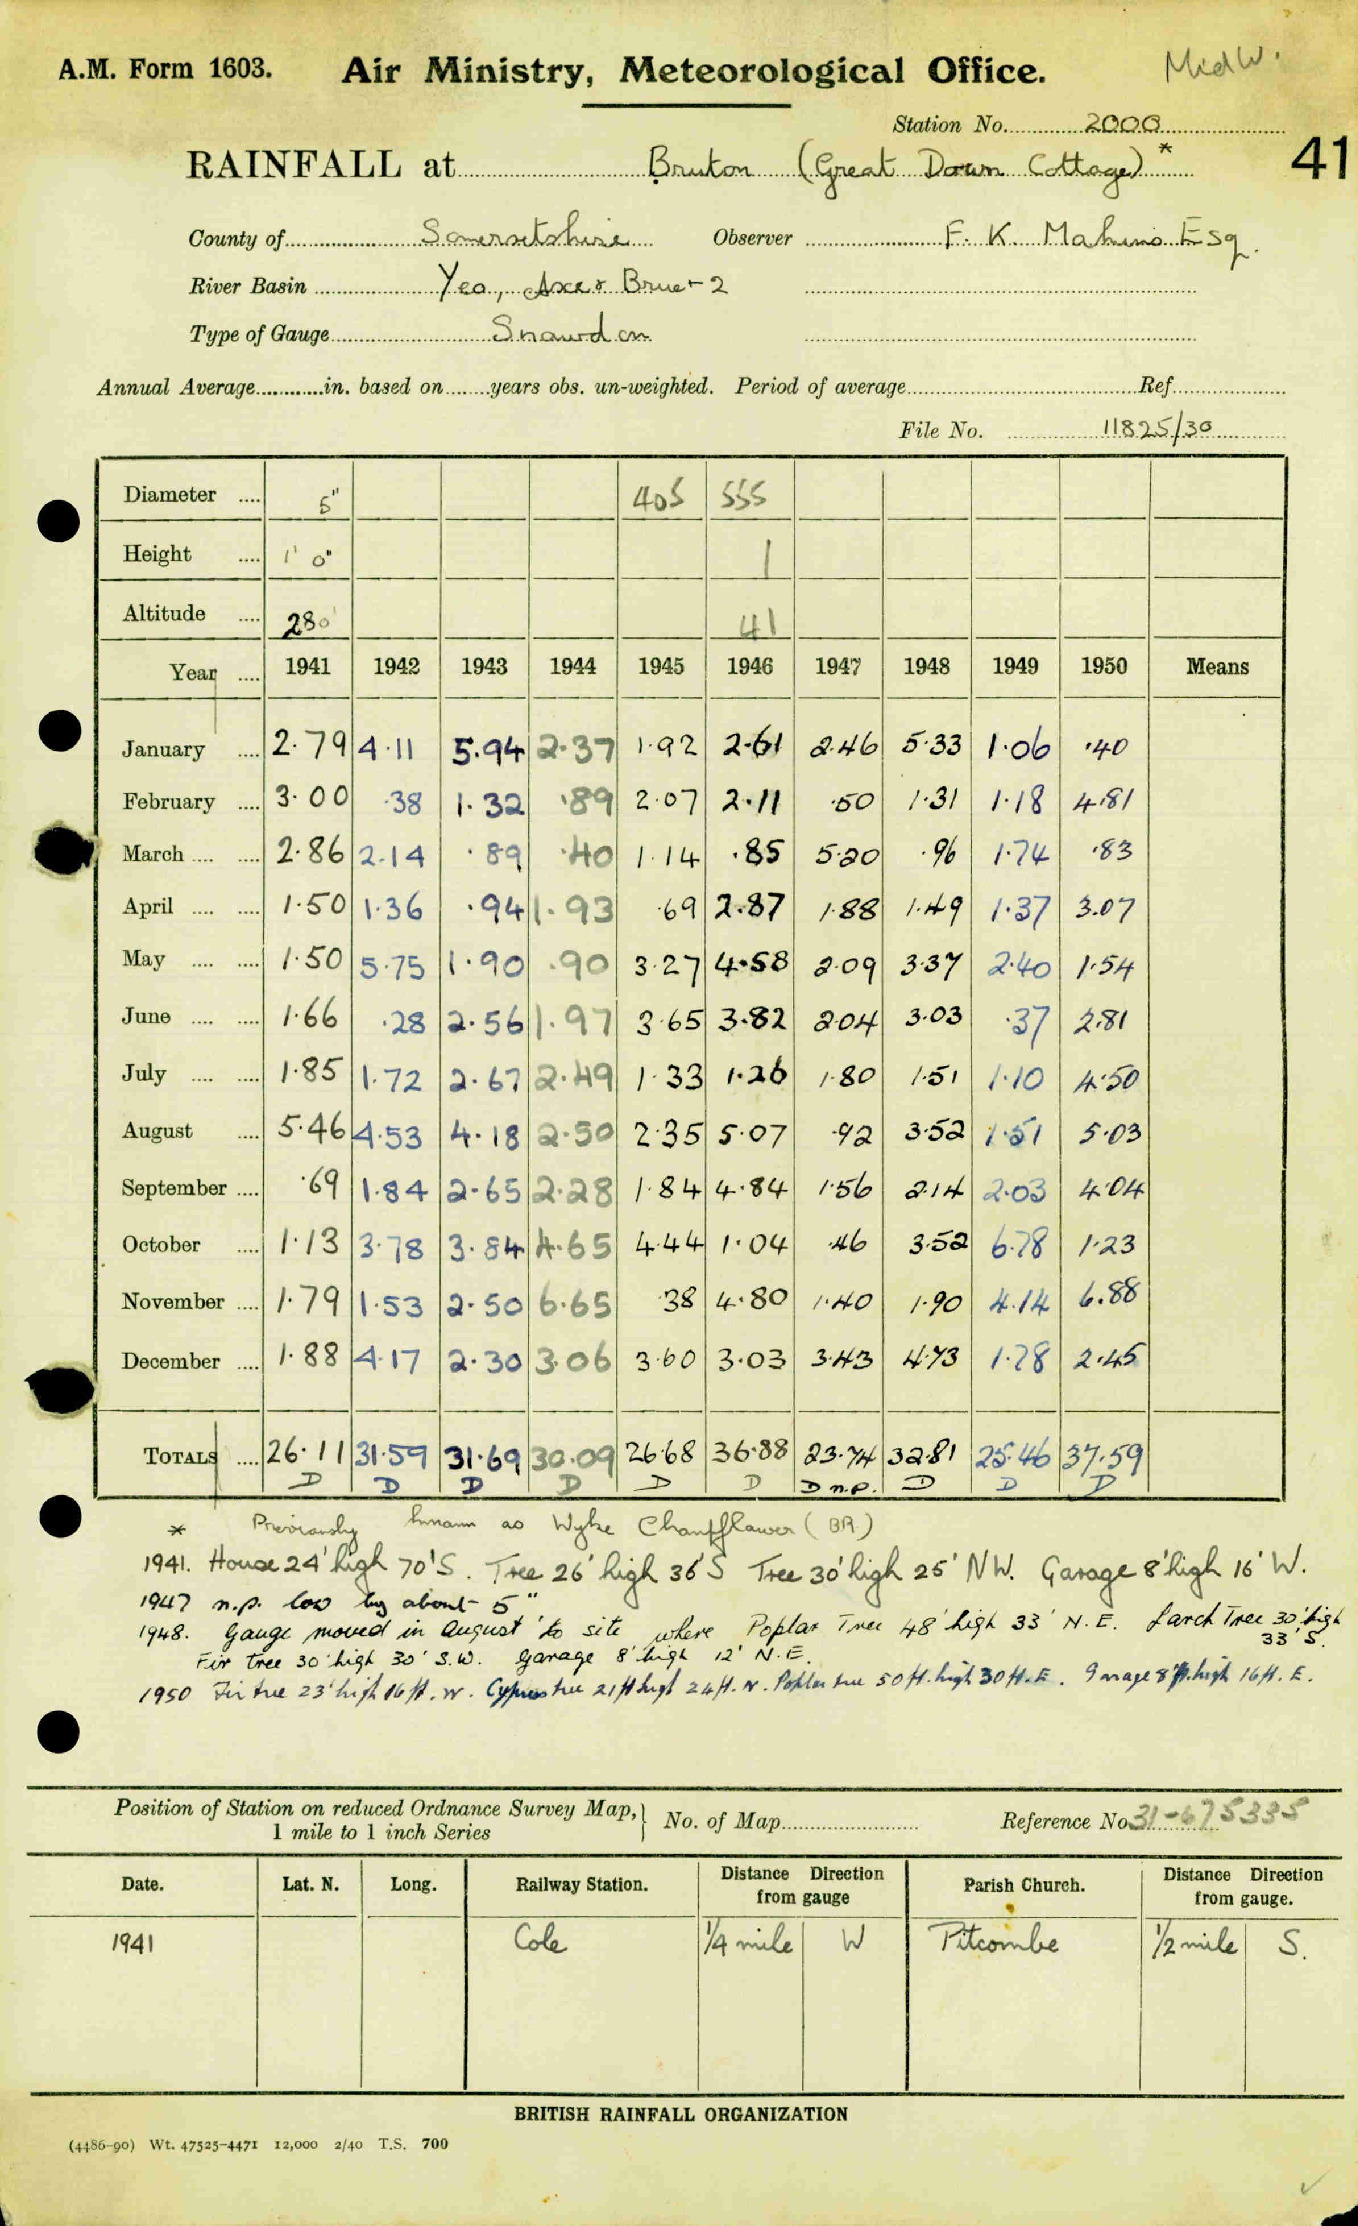 A.M. Form 1603. Air Ministry, Meteorological Office. MidW.
Station No. 2000
RAINFALL at Bruton (Great Down Cottage)* 41
County of Somersetshire Observer F. K. Esq.
River Basin Yeo, Axe & Brue + 2
Type of Gauge Snowdon
Annual Average in. based on years obs. un-weighted. Period of average Ref
File No. 11825/30
Diameter .... 5" 405 555
Height .... 1' 0" 1
Altitude .... 280' 41
Year .... 1941 1942 1943 1944 1945 1946 1947 1948 1949 1950 Means
January .... 2.79 4.11 5.94 2.37 1.92 2.61 2.46 5.33 1.06 .40
February .... 3.00 .38 1.32 .89 2.07 2.11 .50 1.31 1.18 4.81
March .... .... 2.86 2.14 .89 .40 1.14 .85 5.20 .96 1.74 .83
April .... .... 1.50 1.36 .94 1.93 .69 2.87 1.88 1.49 1.37 3.07
May .... .... 1.50 5.75 1.90 .90 3.27 4.58 2.09 3.37 2.40 1.54
June .... .... 1.66 .28 2.56 1.97 3.65 3.82 2.04 3.03 .37 2.81
July .... .... 1.85 1.72 2.67 2.49 1.33 1.26 1.80 1.51 1.10 4.50
August .... 5.46 4.53 4.18 2.50 2.35 5.07 .92 3.52 1.51 5.03
September .... .69 1.84 2.65 2.28 1.84 4.84 1.56 2.14 2.03 4.04
October .... 1.13 3.78 3.84 4.65 4.44 1.04 .46 3.52 6.78 1.23
November .... 1.79 1.53 2.50 6.65 .38 4.80 1.40 1.90 4.14 6.88
December .... 1.88 4.17 2.30 3.06 3.60 3.03 3.43 4.73 1.78 2.45
TOTALS .... 26.11 31.59 31.69 30.09 26.68 36.88 23.74 32.81 25.46 37.59
D D D D D D D n.p. D D D
* Previously known as Wyke Champflower (BR)
1941. House 24' high 70' S. Tree 26' high 36' S Tree 30' high 25' NW. Garage 8' high 16' W.
1947 n.p. low by about 5"
1948. Gauge moved in August to site where Poplar Tree 48' high 33' N.E. Larch Tree 30' high
33' S.
Fir tree 30' high 30' S.W. Garage 8' high 12' N.E.
1950 Fir tree 23' high 16 ft. W. Cypress tree 21 ft high 24 ft. N. Poplar tree 50 ft. high 30 ft. E. Garage 8 ft. high 16 ft. E.
Position of Station on reduced Ordnance Survey Map,
1 mile to 1 inch Series
No. of Map Reference No. 31-675335
Date. Lat. N. Long. Railway Station. Distance Direction from gauge Parish Church. Distance Direction from gauge.
1941 Cole 1/4 mile W Pitcombe 1/2 mile S.
BRITISH RAINFALL ORGANIZATION
(4486-90) Wt. 47525-4471 12,000 2/40 T.S. 700